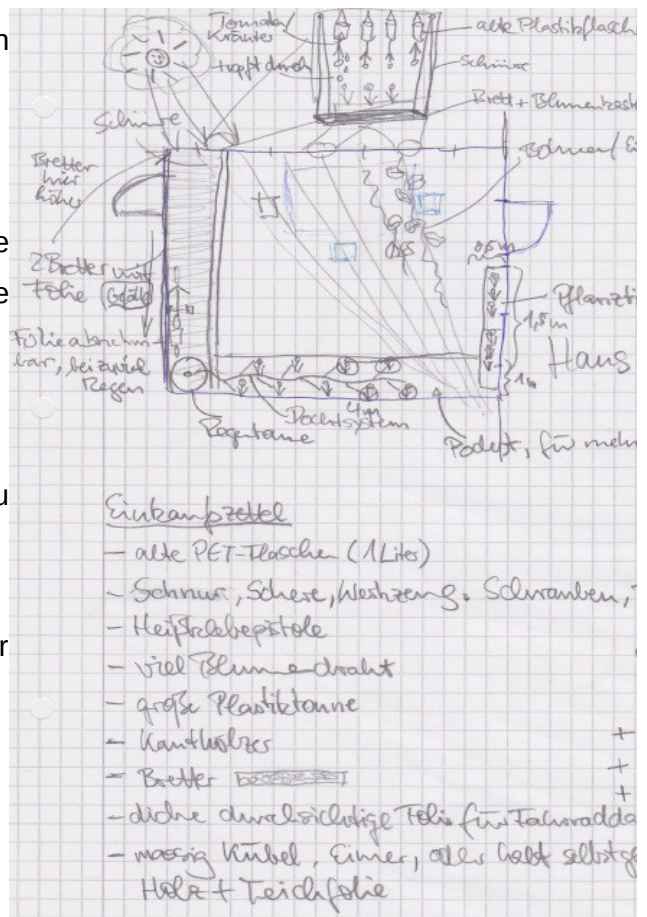 n
e
e
u
r
Tomaten/
Kräuter
tropft durch
alte Plastikflasch
Schnüre
Brett + Blumenkast
Schnüre
Bretter
hier
höher
Bohnen/
2 Bretter mit
Folie Gefälle
Folie abnehm-
bar, bei zuviel
Regen
0,5m
Pflanzti
1,5m
Haus
1m
4m
Dochtsystem
Regentonne
Podest, für mehr
Einkaufszettel
- alte PET-Flaschen (1 Liter)
- Schnur, Schere, Werkzeug. Schrauben,
- Heißklebepistole
- viel Blumendraht
- große Plastiktonne
- Kanthölzer
- Bretter
+
+
+
- dicke durchsichtige Folie für Fahrradda
- massig Kübel, Eimer, oder halt selbstge
Holz + Teichfolie